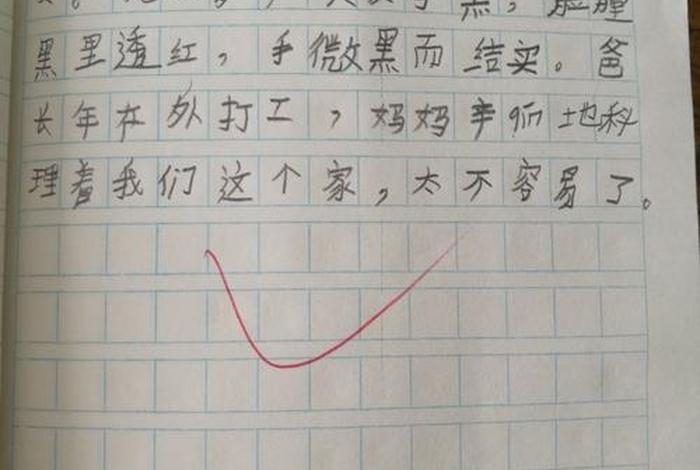 黑，脸膛
黑里透红，手微黑而结实。爸
长年在外打工，妈妈辛师地科
理着我们这个家，太不容易了。